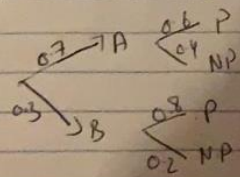 0.6 P
0.7 A
0.4 NP
0.3 B
0.8 P
0.2 NP